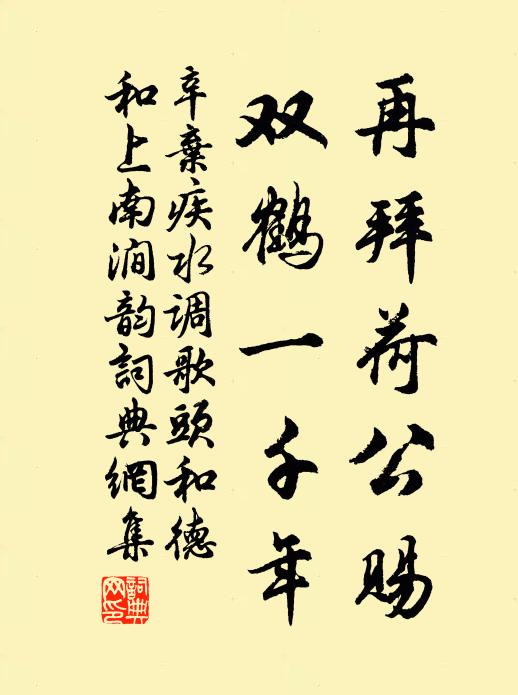 再拜荷公赐
双鹤一千年
辛棄疾水调歌頭和德
和上南澗韵詞典網集
詞典網印